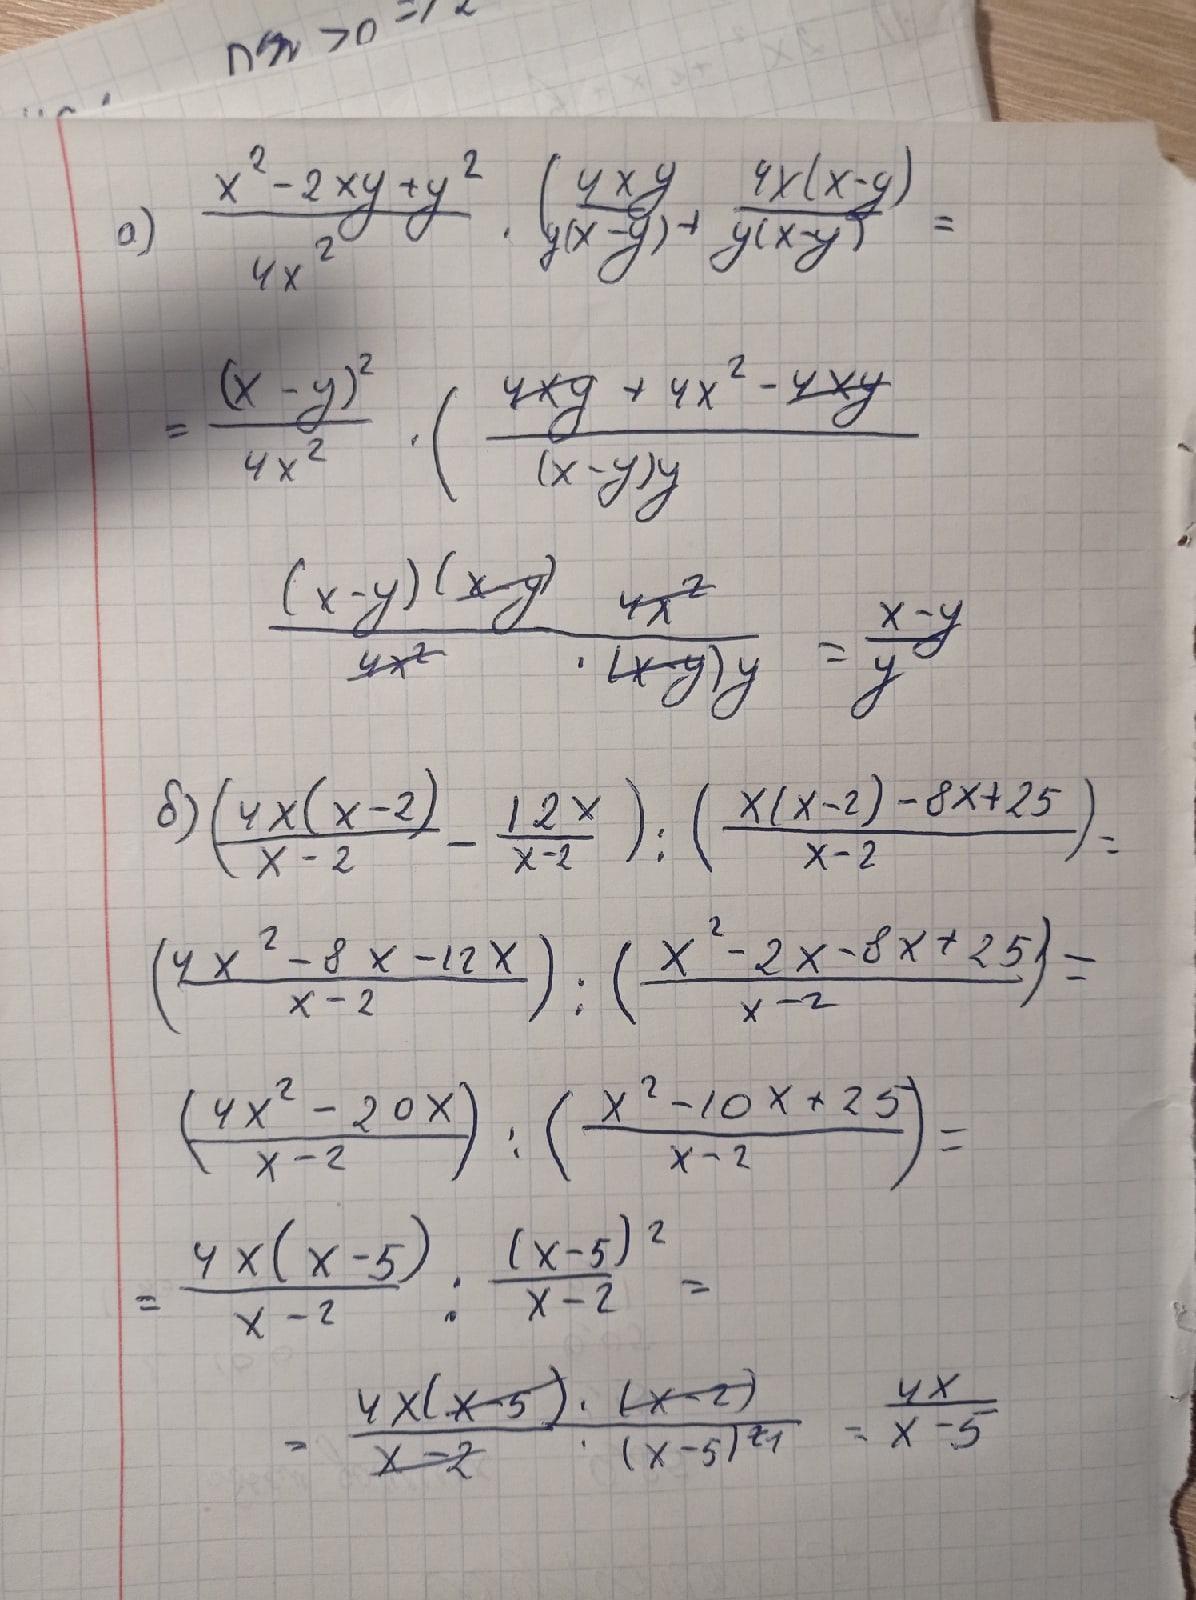 а) (x² - 2xy + y²)/(4x²) · (4xy/(y(x-y)) + 4x(x-y)/(y(x-y)) =
= (x-y)²/(4x²) · ( (4xy + 4x² - 4xy)/((x-y)y)
(x-y)(x-y)/(4x²) · 4x²/((x-y)y) = (x-y)/y
б) (4x(x-2)/(x-2) - 12x/(x-2)) : ((x(x-2) - 8x + 25)/(x-2)) =
((4x² - 8x - 12x)/(x-2)) : ((x² - 2x - 8x + 25)/(x-2)) =
((4x² - 20x)/(x-2)) : ((x² - 10x + 25)/(x-2)) =
= 4x(x-5)/(x-2) : (x-5)²/(x-2) =
= 4x(x-5)/(x-2) · (x-2)/(x-5)² = 4x/(x-5)